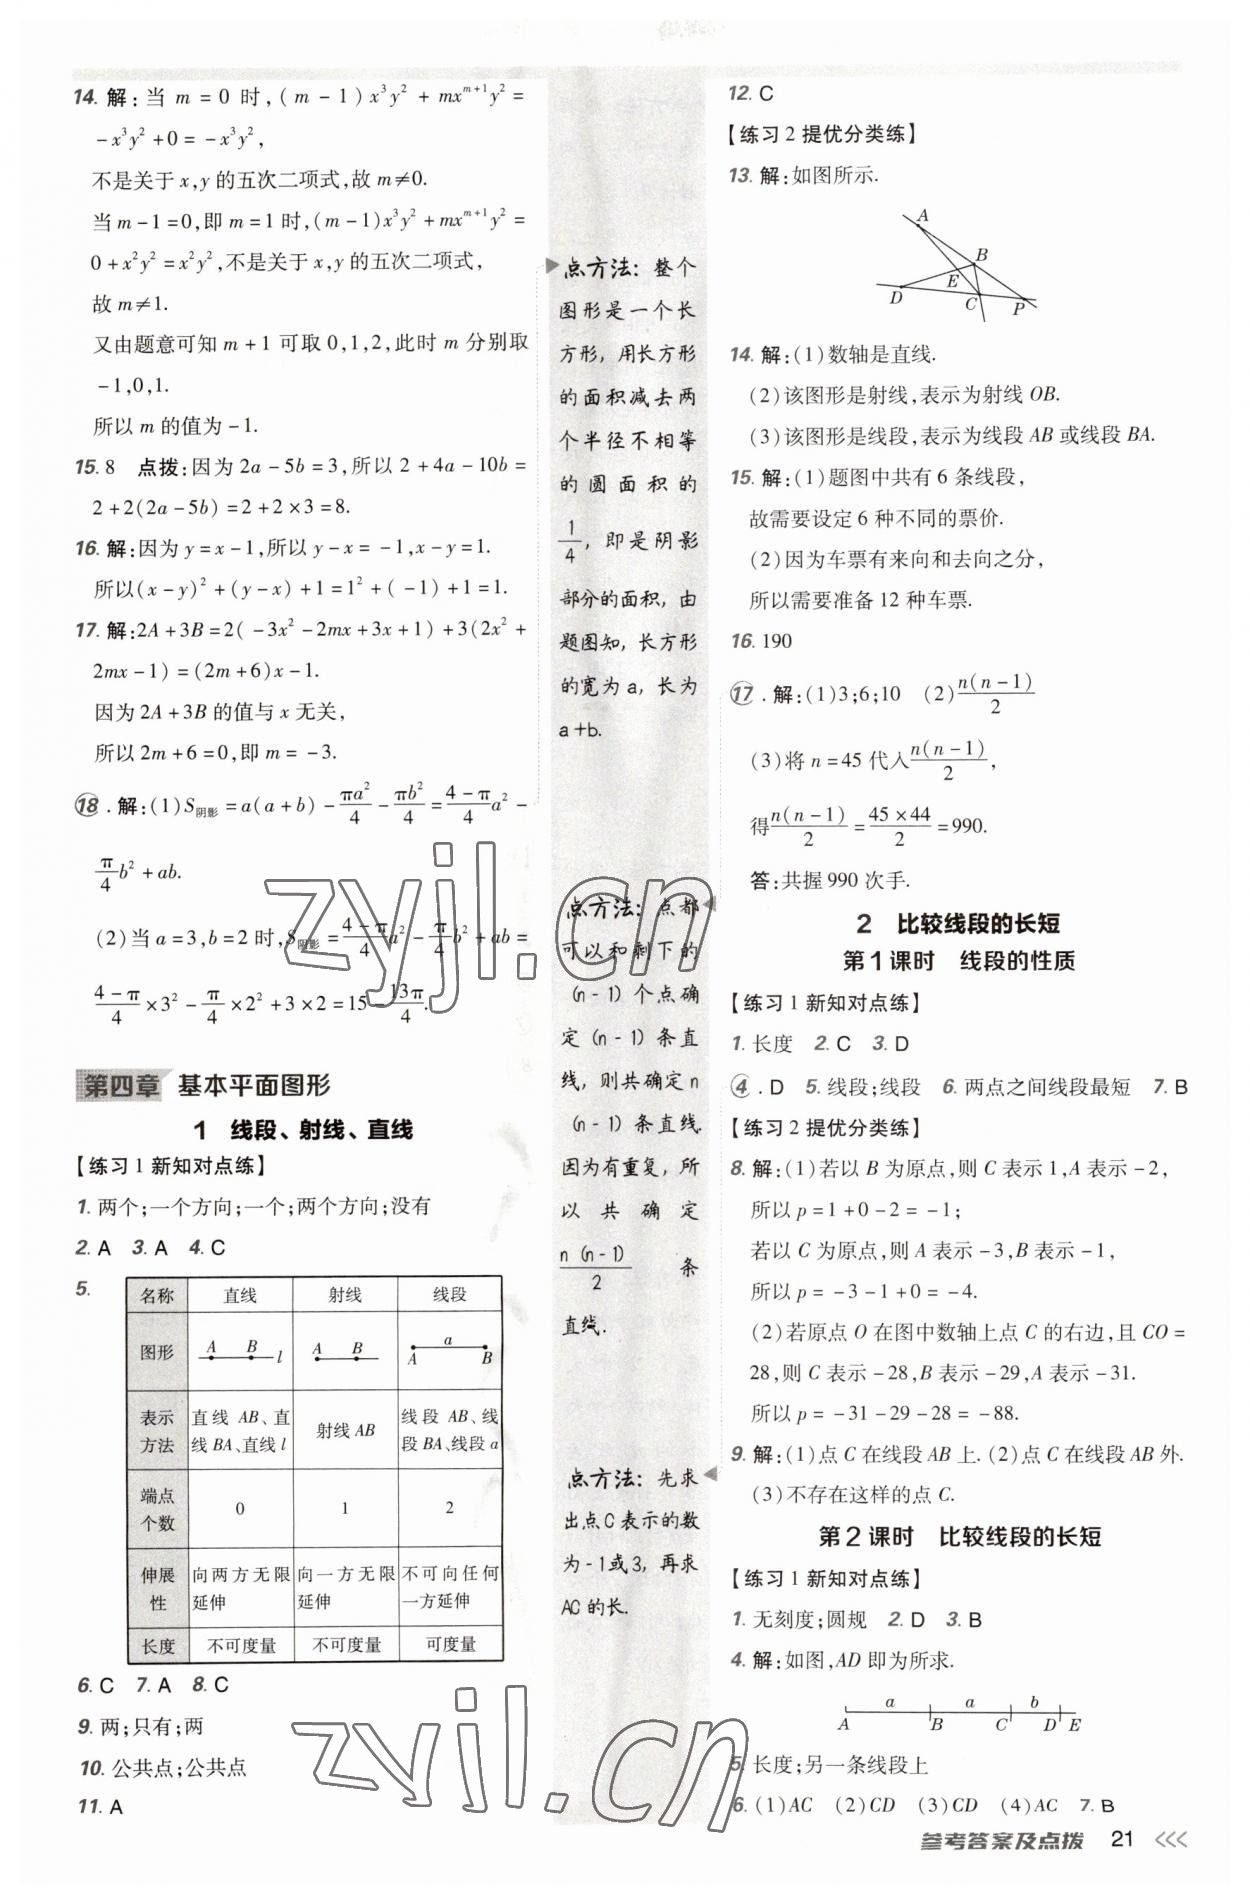 14. 解:当 m = 0 时,(m-1)x³y² + mx^{m+1}y² =
-x³y²+0=-x³y²,
不是关于 x,y 的五次二项式,故 m≠0.
当 m-1=0,即 m=1 时,(m-1)x³y²+mx^{m+1}y²=
0+x²y²=x²y²,不是关于 x,y 的五次二项式,
故 m≠1.
又由题意可知 m+1 可取 0,1,2,此时 m 分别取
-1,0,1.
所以 m 的值为 -1.
15. 8 点拨:因为 2a-5b=3,所以 2+4a-10b=
2+2(2a-5b)=2+2×3=8.
16. 解:因为 y=x-1,所以 y-x=-1,x-y=1.
所以(x-y)²+(y-x)+1=1²+(-1)+1=1.
17. 解:2A+3B=2(-3x²-2mx+3x+1)+3(2x²+
2mx-1)=(2m+6)x-1.
因为 2A+3B 的值与 x 无关,
所以 2m+6=0,即 m=-3.
⑱. 解:(1)S阴影=a(a+b)-πa²/4-πb²/4=(4-π)/4 a²-
π/4 b²+ab.
(2)当 a=3,b=2 时,S阴影=(4-π)/4 a²-π/4 b²+ab=
(4-π)/4×3²-π/4×2²+3×2=15-13π/4.
第四章 基本平面图形
1 线段、射线、直线
【练习1 新知对点练】
1. 两个;一个方向;一个;两个方向;没有
2. A 3. A 4. C
5.
名称 直线 射线 线段
图形 A B l A B a A B
表示方法 直线 AB、直线 BA、直线 l 射线 AB 线段 AB、线段 BA、线段 a
端点个数 0 1 2
伸展性 向两方无限延伸 向一方无限延伸 不可向任何一方延伸
长度 不可度量 不可度量 可度量
6. C 7. A 8. C
9. 两;只有;两
10. 公共点;公共点
11. A
点方法：整个
图形是一个长
方形，用长方形
的面积减去两
个半径不相等
的圆面积的
1/4，即是阴影
部分的面积，由
题图知，长方形
的宽为 a，长为
a+b.
点方法：点都
可以和剩下的
(n-1)个点确
定(n-1)条直
线，则共确定 n
(n-1)条直线.
因为有重复，所
以共确定
n(n-1)/2 条
直线.
点方法：先求
出点 C 表示的数
为 -1 或 3，再求
AC 的长.
12. C
【练习2 提优分类练】
13. 解:如图所示.
A
B
E
D C P
14. 解:(1)数轴是直线.
(2)该图形是射线,表示为射线 OB.
(3)该图形是线段,表示为线段 AB 或线段 BA.
15. 解:(1)题图中共有 6 条线段,
故需要设定 6 种不同的票价.
(2)因为车票有来向和去向之分,
所以需要准备 12 种车票.
16. 190
⑰. 解:(1)3;6;10 (2)n(n-1)/2
(3)将 n=45 代入 n(n-1)/2,
得 n(n-1)/2=45×44/2=990.
答:共握 990 次手.
2 比较线段的长短
第1课时 线段的性质
【练习1 新知对点练】
1. 长度 2. C 3. D
④. D 5. 线段;线段 6. 两点之间线段最短 7. B
【练习2 提优分类练】
8. 解:(1)若以 B 为原点,则 C 表示 1,A 表示 -2,
所以 p=1+0-2=-1;
若以 C 为原点,则 A 表示 -3,B 表示 -1,
所以 p=-3-1+0=-4.
(2)若原点 O 在图中数轴上点 C 的右边,且 CO=
28,则 C 表示 -28,B 表示 -29,A 表示 -31.
所以 p=-31-29-28=-88.
9. 解:(1)点 C 在线段 AB 上.(2)点 C 在线段 AB 外.
(3)不存在这样的点 C.
第2课时 比较线段的长短
【练习1 新知对点练】
1. 无刻度;圆规 2. D 3. B
4. 解:如图,AD 即为所求.
a a b
A B C D E
5. 长度;另一条线段上
6. (1)AC (2)CD (3)CD (4)AC 7. B
参考答案及点拨 21
zyjl.cn
zyjl.cn